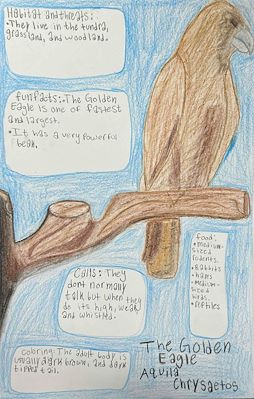 Habitat and threats:
• They live in the tundra,
grassland, and woodland.
fun facts: • The Golden
Eagle is one of fastest
and largest.
• It was a very powerful
beak.
Calls: They
dont normally
talk but when they
do its high, weak
and whistled.
food:
• medium-
sized
rodents.
• Rabbits
• hares
• Medium-
sized
birds.
• reptiles
coloring: The adult body is
usually dark brown, and dark
tipped tail.
The Golden
Eagle
Aquila
Chrysaetos